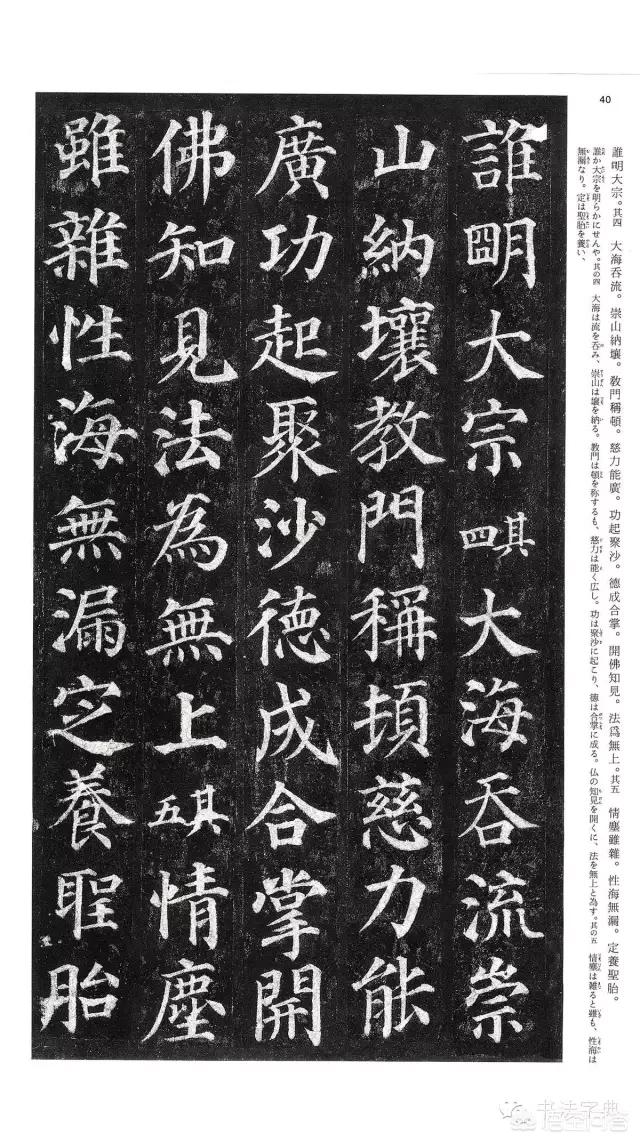 40
誰明大宗。其四　大海呑流。崇山納壤。教門稱頓。慈力能廣。功起聚沙。德成合掌。開佛知見。法爲無上。其五　情塵雖雜。性海無漏。定養聖胎。
誰か大宗を明らかにせんや。其の四　大海は流を呑み、崇山は壤を納る。教門は頓を称するも、慈力は能く広し。功は聚沙に起こり、徳は合掌に成る。仏の知見を開くに、法を無上と為す。其の五　情塵は雑ると雖も、性海は
無漏なり。定は聖胎を養い、
誰明大宗其四大海吞流崇
山納壤教門稱頓慈力能
廣功起聚沙德成合掌開
佛知見法為無上其五情塵
雖雜性海無漏定養聖胎
书法字典